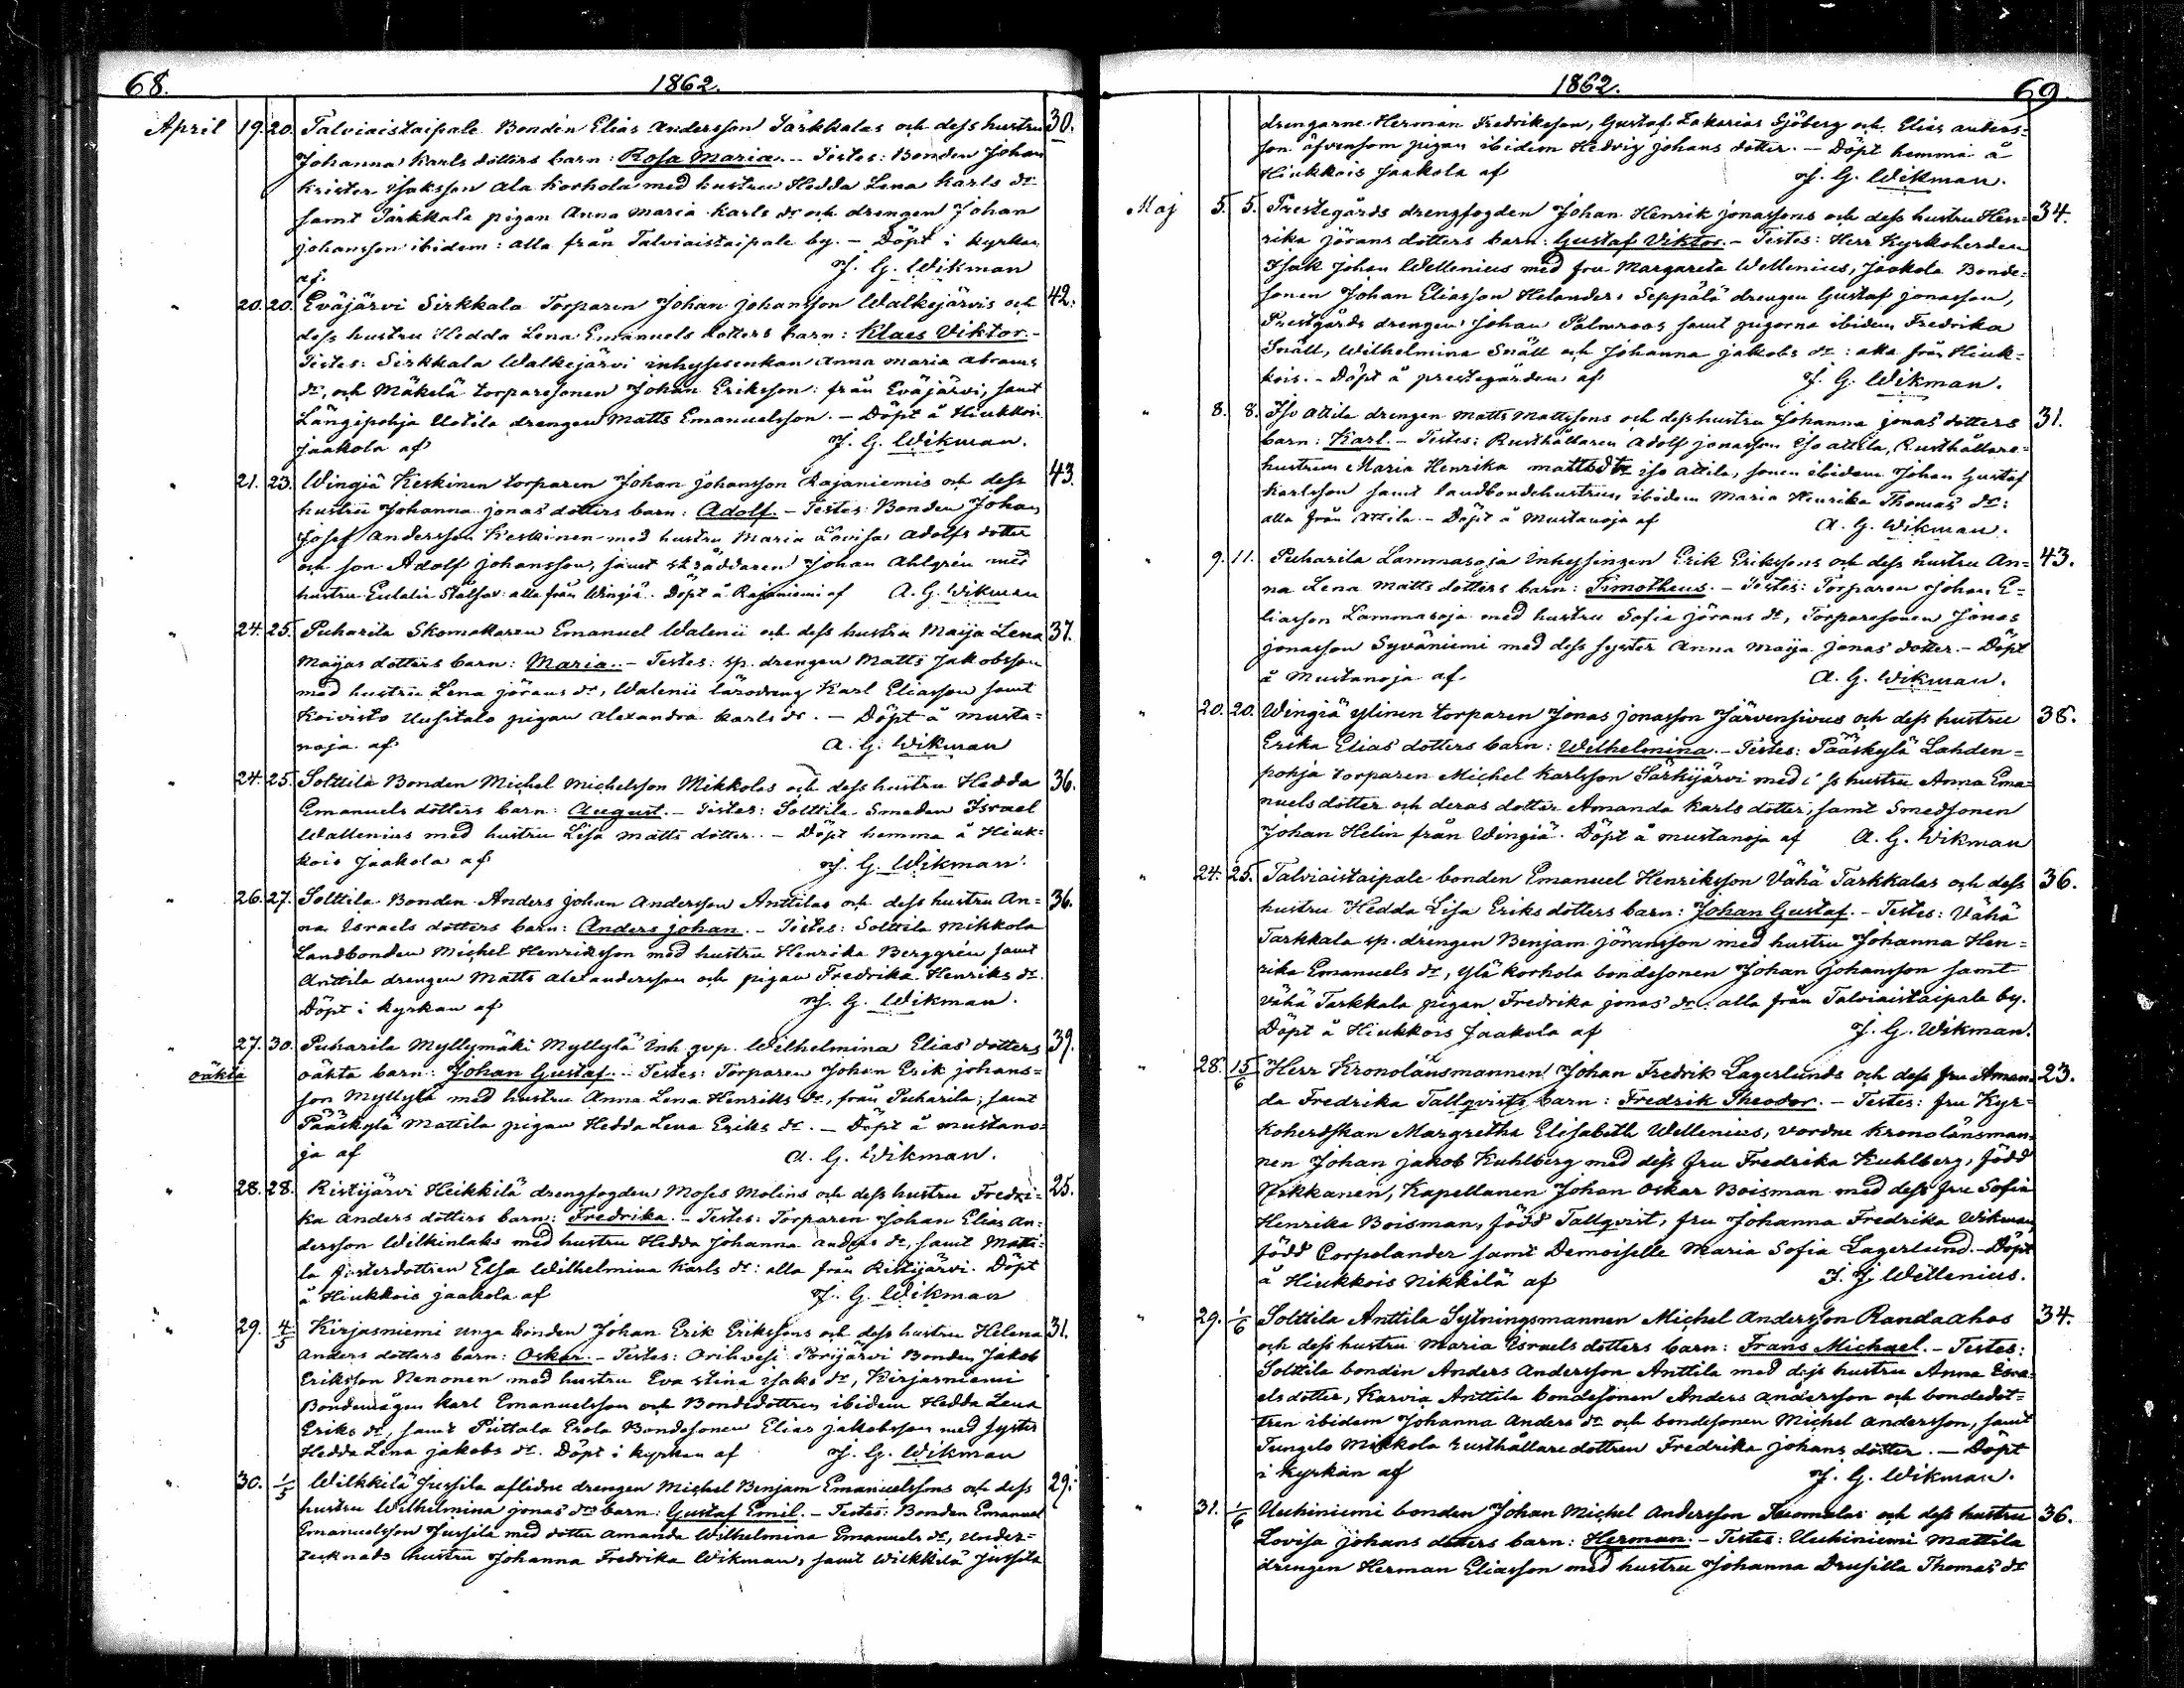 68. 1862.
April 19. 20. Talviaistaipale Bonden Elias Andersson Tarkkalas och dess hustru 30.
Johanna Karls dotters barn: Rosa Maria. - Testes: Bonden Johan
Krister Isaksson Ala Korhola med hustru Hedda Lena Karls dr
samt Tarkkala pigan Anna Maria Karls dr och drengen Johan
Johansson ibidem: alla från Talviaistaipale by. - Döpt i kyrkan
af J. G. Wikman
" 20. 20. Eväjärvi Sirkkala Torparen Johan Johansson Walkejärvis och 42.
dess hustru Hedda Lena Emanuels dotters barn: Klaes Viktor. -
Testes: Sirkkala Walkejärvi inhysesenkan Anna Maria Abrams
dr, och Mäkelä torparesonen Johan Eriksson: från Eväjärvi, samt
Längipohja Uotila drengen Matts Emanuelsson. - Döpt å Hiukkois
Jaakola af J. G. Wikman.
" 21. 23. Wingiä Keskinen torparen Johan Johansson Rajaniemis och dess 43.
hustru Johanna Jonas dotters barn: Adolf. - Testes: Bonden Johan
Josef Andersson Keskinen med hustru Maria Lovisa Adolfs dotter
och son Adolf Johansson, samt skräddaren Johan Ahlgrén med
hustru Eulalia : alla från Wingiä. Döpt å Rajaniemi af A. G. Wikman
" 24. 25. Puharila Skomakaren Emanuel Walenii och dess hustru Maija Lena 37.
Maijas dotters barn: Maria. - Testes: sp. drengen Matts Jakobsson
med hustru Lena Jörans dr, Walenii lärodreng Karl Eliasson samt
Koivisto Uusitalo pigan Alexandra Karls dr. - Döpt å Musta=
noja af A. G. Wikman
" 24. 25. Solttila Bonden Michel Michelsson Mikkolas och dess hustru Hedda 36.
Emanuels dotters barn: August. - Testes: Solttila Smeden Israel
Wallenius med hustru Lisa Matts dotter. - Döpt hemma å Hiuk=
kois Jaakola af J. G. Wikman.
" 26. 27. Solttila Bonden Anders Johan Andersson Anttilas och dess hustru An= 36.
na Israels dotters barn: Anders Johan. - Testes: Solttila Mikkola
Landbonden Michel Henriksson med hustru Henrika Berggrén samt
Anttila drengen Matts Alexandersson och pigan Fredrika Henriks dr.
Döpt i kyrkan af J. G. Wikman.
" 27. 30. Puharila Myllymäki Myllylä inh. qvp. Wilhelmina Elias dotters 39.
oäkta oäkta barn: Johan Gustaf. - Testes: Torparen Johan Erik Johans=
son Myllylä med hustru Anna Lena Henriks dr, från Puharila; samt
Pääskylä Mattila pigan Hedda Lena Eriks dr. - Döpt å Mustano=
ja af A. G. Wikman.
" 28. 28. Ristijärvi Heikkilä drengfogden Moses Molins och dess hustru Fredri= 25.
ka Anders dotters barn: Fredrika. - Testes: Torparen Johan Elias An=
dersson Wilkinlaks med hustru Hedda Johanna Anders dr, samt Matti=
la systerdottren Elsa Wilhelmina Karls dr: alla från Ristijärvi. Döpt
å Hiukkois Jaakola af J. G. Wikman
" 29. 4/5 Kirjasniemi unga bonden Johan Erik Erikssons och dess hustru Helena 31.
Anders dotters barn: Oskar. - Testes: Orihvesi Bonden Jakob
Eriksson Nenonen med hustru Eva Stina Isaks dr, Kirjasniemi
Bondemågen Karl Emanuelsson och Bondedottren ibidem Hedda Lena
Eriks dr, samt Puttala Erola Bondesonen Elias Jakobsson med syster
Hedda Lena Jakobs dr. Döpt i kyrkan af J. G. Wikman
" 30. 1/5 Wilkkilä Jussila aflidne drengen Michel Benjam Emanuelssons och dess 29.
hustru Wilhelmina Jonas drs barn: Gustaf Emil. - Testes: Bonden Emanuel
Emanuelsson Jussila med dotter Amanda Wilhelmina Emanuels dr, under=
tecknads hustru Johanna Fredrika Wikman, samt Wilkkilä Jussila
1862. 69.
drengarne Herman Fredriksson, Gustaf Zakarias Sjöberg och Elias Anders=
son äfvensom pigan ibidem Hedvig Johans dotter. - Döpt hemma å
Hiukkois Jaakola af J. G. Wikman.
Maj 5. 5. Prestegårds drengfogden Johan Henrik Jonassons och dess hustru Hen= 34.
rika Jörans dotters barn: Gustaf Viktor. - Testes: Herr Kyrkoherden
Isak Johan Wellenius med fru Margareta Wellenius, Jaakola Bonde=
sonen Johan Eliasson Helander, Seppälä drengen Gustaf Jonasson,
Prestgårds drengen Johan Palmroos samt pigorna ibidem Fredrika
Snäll, Wilhelmina Snäll och Johanna Jakobs dr: alla från Hiuk=
kois. - Döpt å prestegården af J. G. Wikman.
" 8. 8. Iso Attila drengen Matts Mattssons och dess hustru Johanna Jonas dotters 31.
barn: Karl. - Testes: Rusthållaren Adolf Jonasson Iso Attila, Rusthållare=
hustrun Maria Henrika Matts dr Iso Attila, sonen ibidem Johan Gustaf
Karlsson samt landbondehustrun ibidem Maria Henrika Thomas dr:
alla från Attila. - Döpt å Mustanoja af A. G. Wikman.
" 9. 11. Puharila Lammasoja Inhysingen Erik Erikssons och dess hustru An= 43.
na Lena Matts dotters barn: Timotheus. - Testes: Torparen Johan E=
liasson Lammasoja med hustru Sofia Jörans dr, Torparesonen Jonas
Jonasson Syväniemi med dess syster Anna Maija Jonas dotter. - Döpt
å Mustanoja af A. G. Wikman.
" 20. 20. Wingiä Ylinen torparen Jonas Jonasson Järvensivus och dess hustru 38.
Erika Elias dotters barn: Wilhelmina. - Testes: Pääskylä Lahden=
pohja torparen Michel Karlsson Särkijärvi med dess hustru Anna Ema=
nuels dotter och deras dotter Amanda Karls dotter, samt Smedsonen
Johan Helin från Wingiä. Döpt å Mustanoja af A. G. Wikman
" 24. 25. Talviaistaipale bonden Emanuel Henriksson Vähä Tarkkalas och dess 36.
hustru Hedda Lisa Eriks dotters barn: Johan Gustaf. - Testes: Vähä
Tarkkala sp. drengen Benjam Jöransson med hustru Johanna Hen=
rika Emanuels dr, Ylä Korhola bondesonen Johan Johansson samt
Vähä Tarkkala pigan Fredrika Jonas dr: alla från Talviaistaipale by.
Döpt å Hiukkois Jaakola af J. G. Wikman.
" 28. 15/6 Herr Kronolänsmannen Johan Fredrik Lagerlunds och dess fru Aman= 23.
da Fredrika Tallqvists barn: Fredrik Theodor. - Testes: fru Kyr=
koherdskan Margretha Elisabeth Wellenius, vordne Kronolänsman=
nen Johan Jakob Kuhlberg med dess fru Fredrika Kuhlberg, född
Kapellanen Johan Oskar Boisman med dess fru Sofia
Henrika Boisman, född Tallqvist, fru Johanna Fredrika Wikman
född Corpelander samt Demoiselle Maria Sofia Lagerlund. - Döpt
å Hiukkois Nikkilä af I. J. Wellenius.
" 29. 1/6 Solttila Anttila Sytningsmannen Michel Andersson Randaahos 34.
och dess hustru Maria Israels dotters barn: Frans Michael. - Testes:
Solttila bonden Anders Andersson Anttila med dess hustru Anna Isra=
els dotter, Karvia Anttila bondesonen Anders Andersson och bondedot=
tren ibidem Johanna Anders dr och bondesonen Michel Andersson, samt
Tungelo Mikkola rusthållaredottren Fredrika Johans dotter. - Döpt
i kyrkan af J. G. Wikman.
" 31. 1/6 Uuhiniemi bonden Johan Michel Andersson Tuomelas och dess hustru 36.
Lovisa Johans dotters barn: Herman. - Testes: Uuhiniemi Mattila
drengen Herman Eliasson med hustru Johanna Drusilla Thomas dr